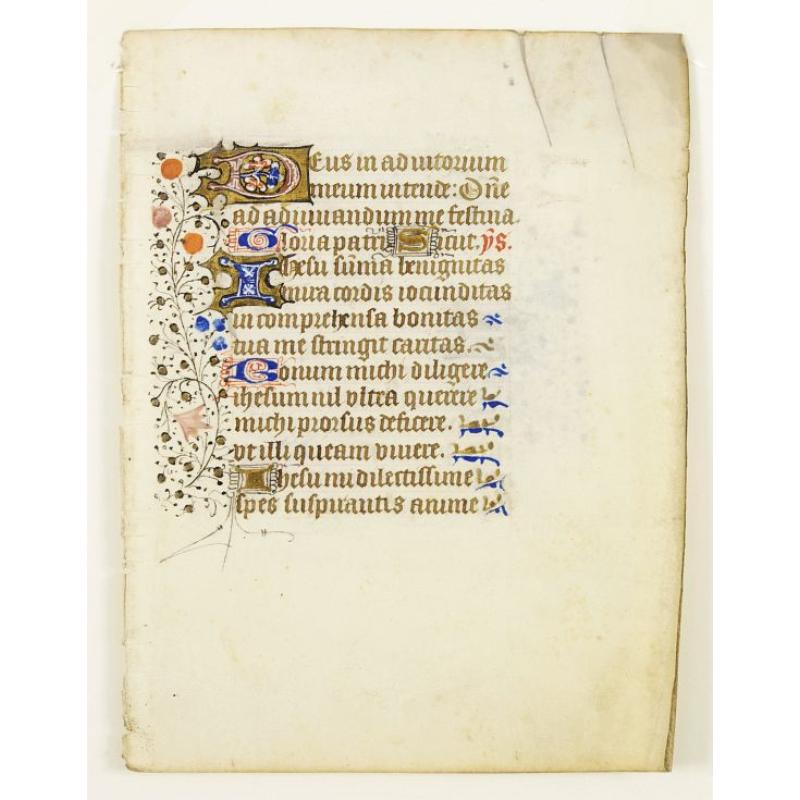 Deus in adiutorium
meum intende: Dñe
ad adiuuandum me festina.
Gloria patri Sicut. ys.
Ihesu sūma benignitas
mira cordis iocunditas
incomprehensa bonitas
tua me stringit caritas.
Bonum michi diligere
ihesum nil vltra querere
michi prorsus deficere.
vt illi queam viuere.
Ihesu mi dilectissime
spes suspirantis anime